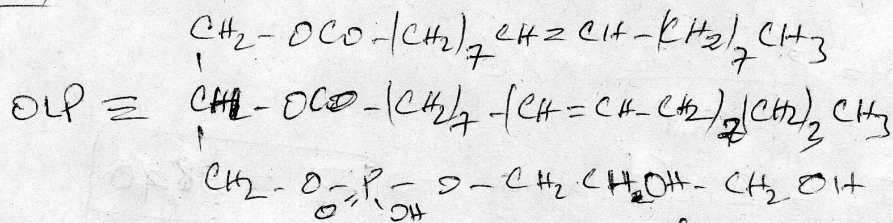 CH2 - OCO - (CH2)7 CH = CH - (CH2)7 CH3
OLP ≡ CH - OCO - (CH2)7 - (CH = CH - CH2)2 (CH2)3 CH3
CH2 - O - P - O - CH2 CH2OH - CH2 OH
O OH